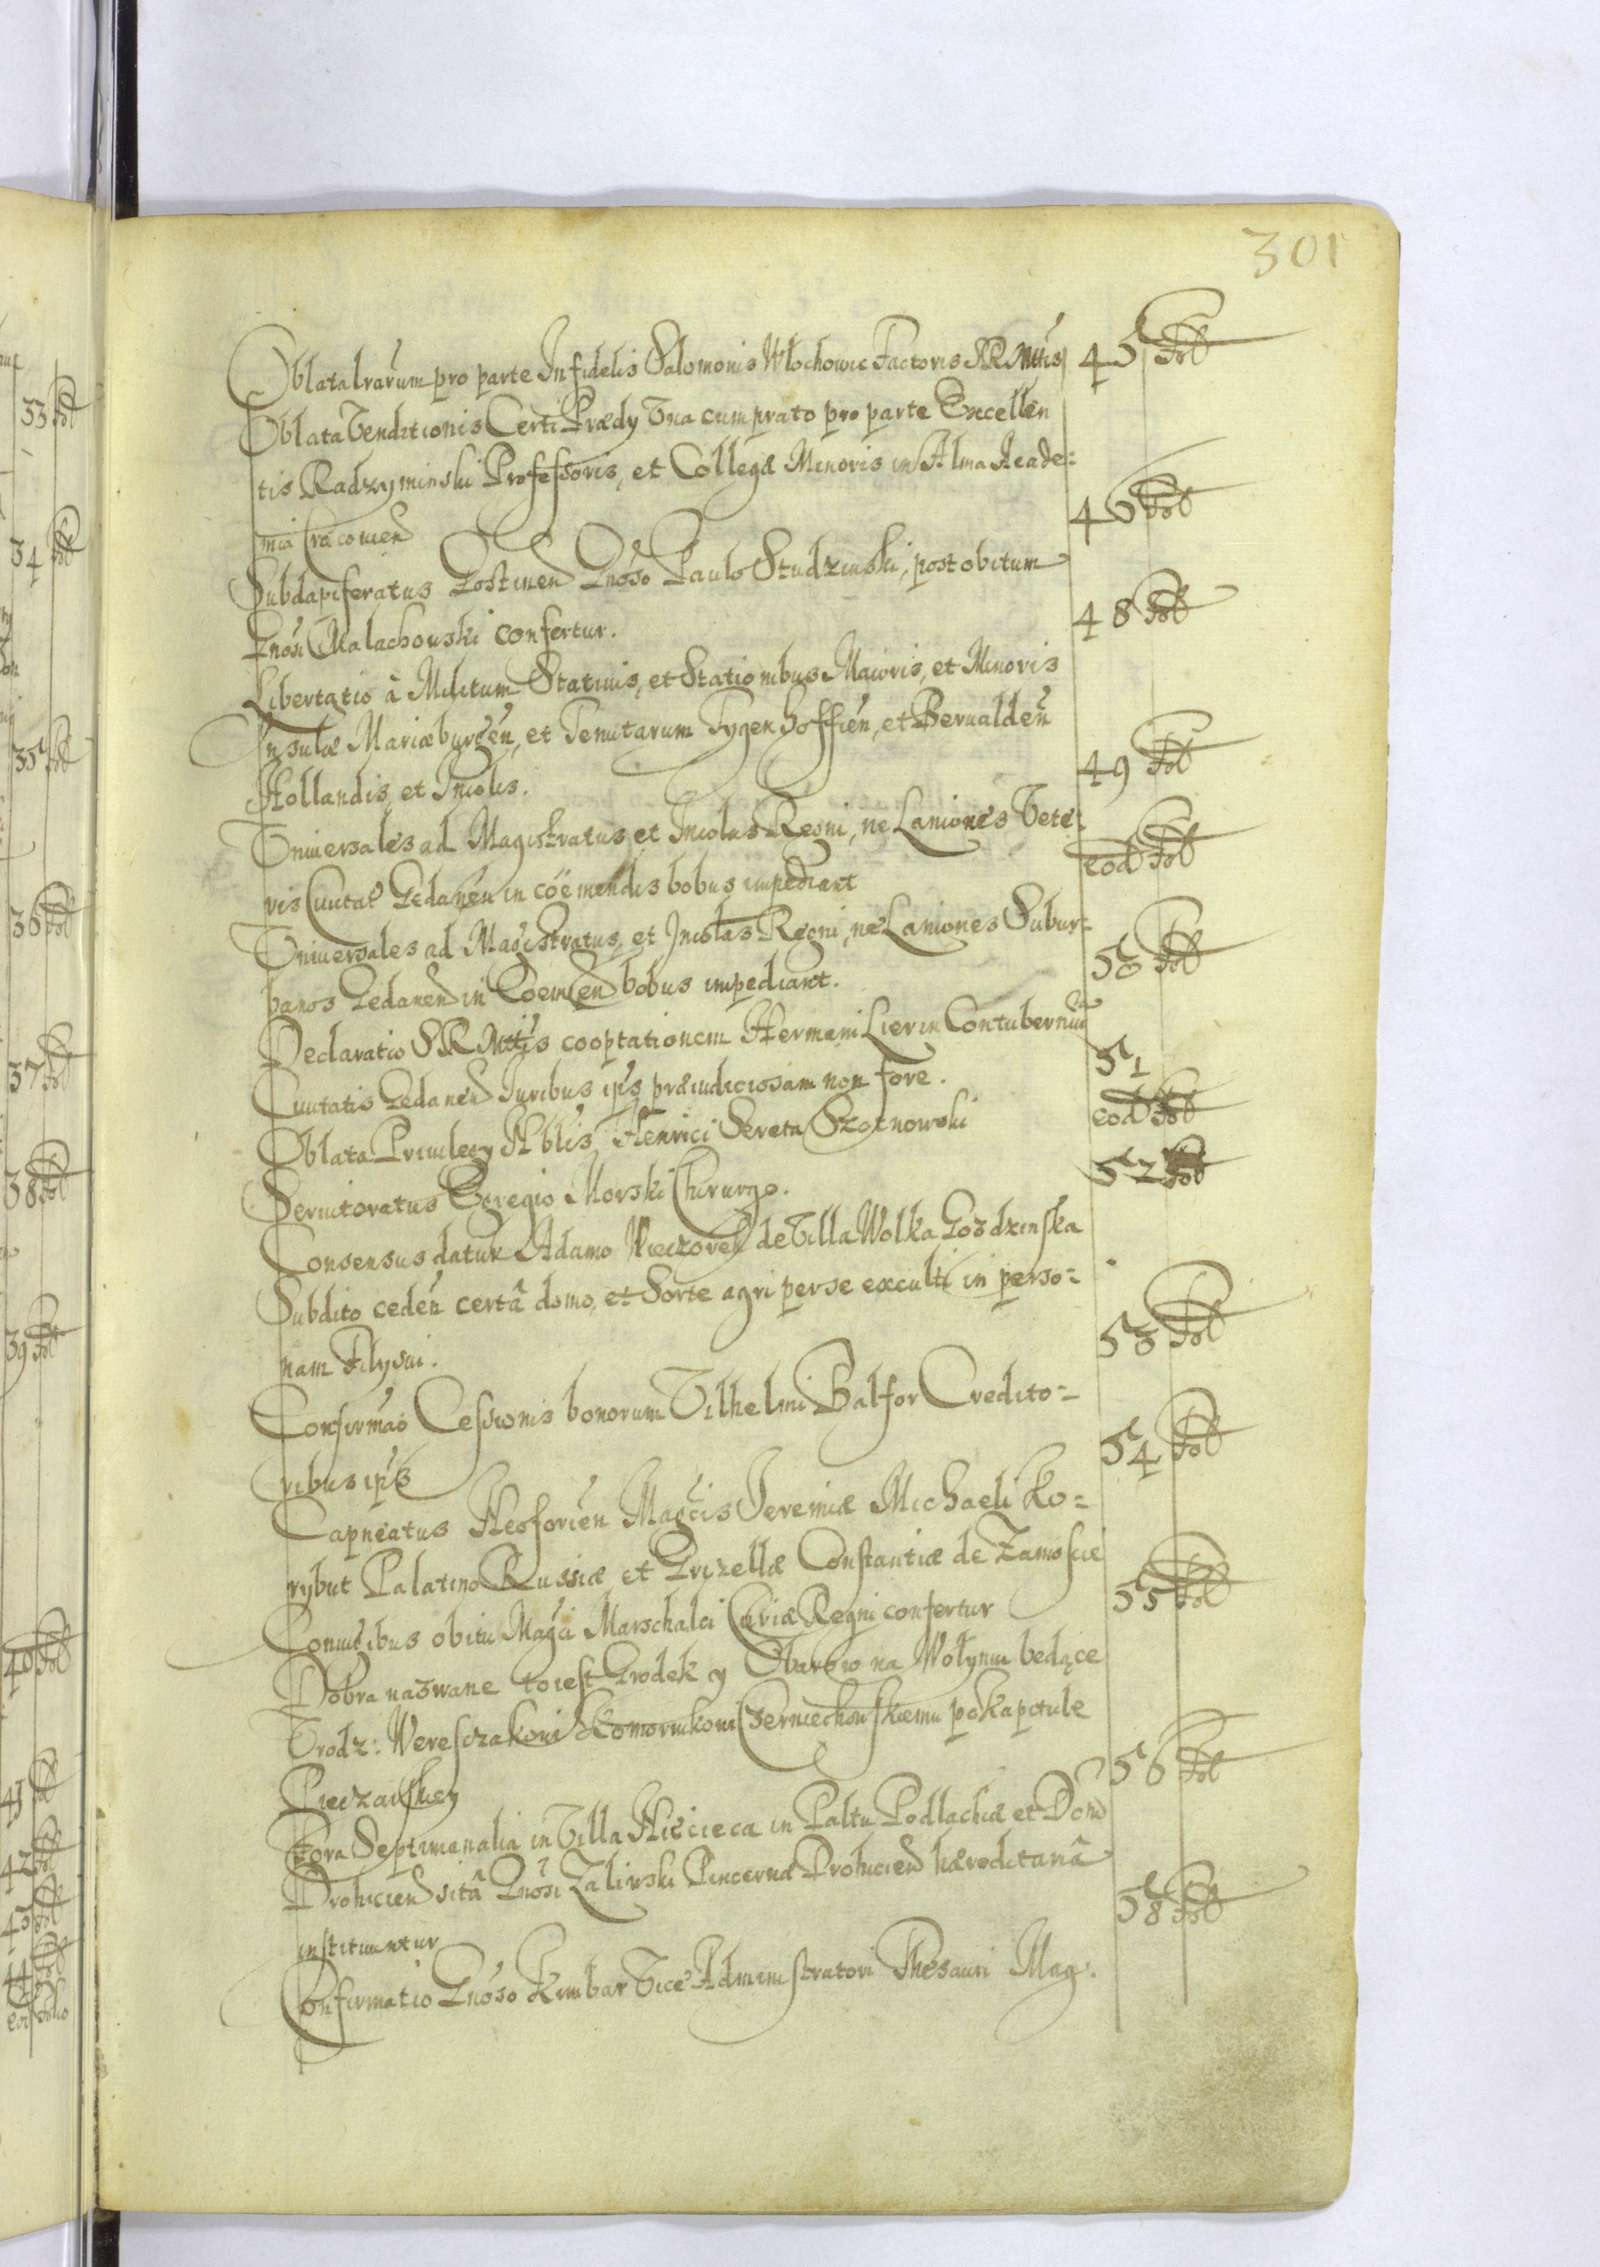 301
Oblata lrarum pro parte Infidelis Salomonis Włochowic Factoris SRMttis 45 Fol
Oblata Venditionis Certi Prædy Vna cum prato pro parte Excellen
tis Radzyminski Professoris, et Collegæ Minoris in Alma Acade=
mia Cracouien 46 Fol
Subdapiferatus Gostinen Gnoso Paulo Studzinski, post obitum
Gnosi Małachowski confertur. 48 Fol
Libertatio â Militum Statiuis, et Stationibus Maioris, et Minoris
Insulæ Mariæburgen, et Tenutarum Tygenhoffien, et Berualden
Hollandis et Incolis. 49 Fol
Vniuersales ad Magistratus, et Incolas Regni, ne Laniones Vete=
ris Ciuitat Gedanen in coëmendis bobus impediant eod Fol
Vniuersales ad Magistratus, et Incolas Regni, ne Laniones Subur=
banos Gedanen in Coemen bobus impediant. 50 Fol
Declaratio SRMttis cooptationem Hermani Lier in Contubernia
Ciuitatis Gedanen Iuribus ips præiudiciosam non fore. 51
Oblata Priuilegy Nblis Henrici Sereta Szotnowski eod Fol
Seruitoratus Egregio Morski Chirurgo. 52 Fol
Consensus datur Adamo Wieczorek de Villa Wolka Gozdzinska
Subdito ceden certâ domo, et Sorte agri per se exculti in perso=
nam Filysui. 53 Fol
Confirmao Cessionis bonorum Vilhelmi Balfor Credito=
ribus ips 54 Fol
Capneatus Nosorien Magcis Ieremiæ Michaeli Ko=
rybut Palatino Russiæ et Gryzellæ Constantiæ de Zamoscie
Coniugibus obitu Magci Marschalci Curiæ Regni confertur 55 Fol
Dobra nazwane to iest Grodek y Obarow na Wołyniu będące
Vrodz: Weresczakowi Komornikowi Czerniechowskiemu po kapitule
Pieczarskiey 56 Fol
Fora Septimanalia in Villa in Paltu Podlachiæ et
Drohicien sitâ Gnosi Zaliwski Pincernæ Drohicien hæreditariâ
instituuntur 58 Fol
Confirmatio Gnoso Kimbar Vice Administratori Thesauri Mag.
33 Fol
34 Fol
35 Fol
36 Fol
37 Fol
38 Fol
39 Fol
40 Fol
41 Fol
42 Fol
43 Fol
44 Fol